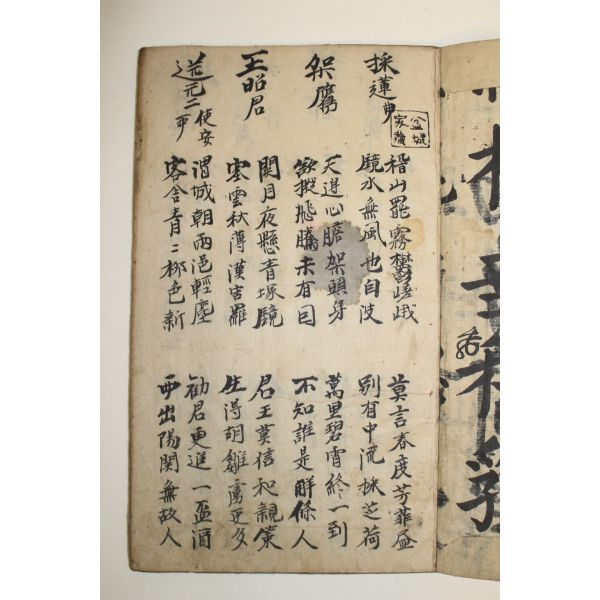 採蓮曲
盆城
稽山罷霧欝嵯峨
鏡水無風也自波
莫言春度芳菲盡
別有中流採芝荷
架鷹
天邊心膽架頭身
欲擬飛騰未有因
萬里碧霄終一到
不知誰是解絛人
王昭君
関月夜懸青塚鏡
寒雲秋薄漢宮羅
君王莫信和親策
生得胡雛虜更多
送元二使安西
渭城朝雨浥輕塵
客舍青〻柳色新
勸君更進一盃酒
西出陽関無故人